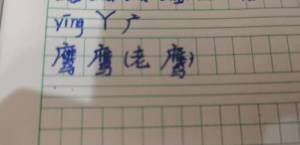 yīng 丫 广
鹰 鹰 (老 鹰)